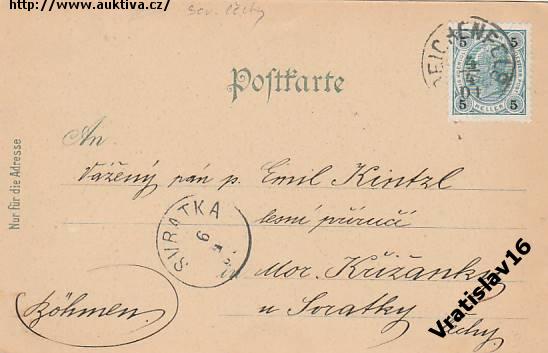 http://www.auktiva.cz/
Sev. Čechy
Postkarte
REICHENFELD
5 5
5 HELLER 5
An
Vážený pán p. Emil Kintzl
lesní příručí
SVRATKA
6
in Mor. Křižánky
Böhmen.
u Svratky
Čechy
Nur für die Adresse
Vratislav16